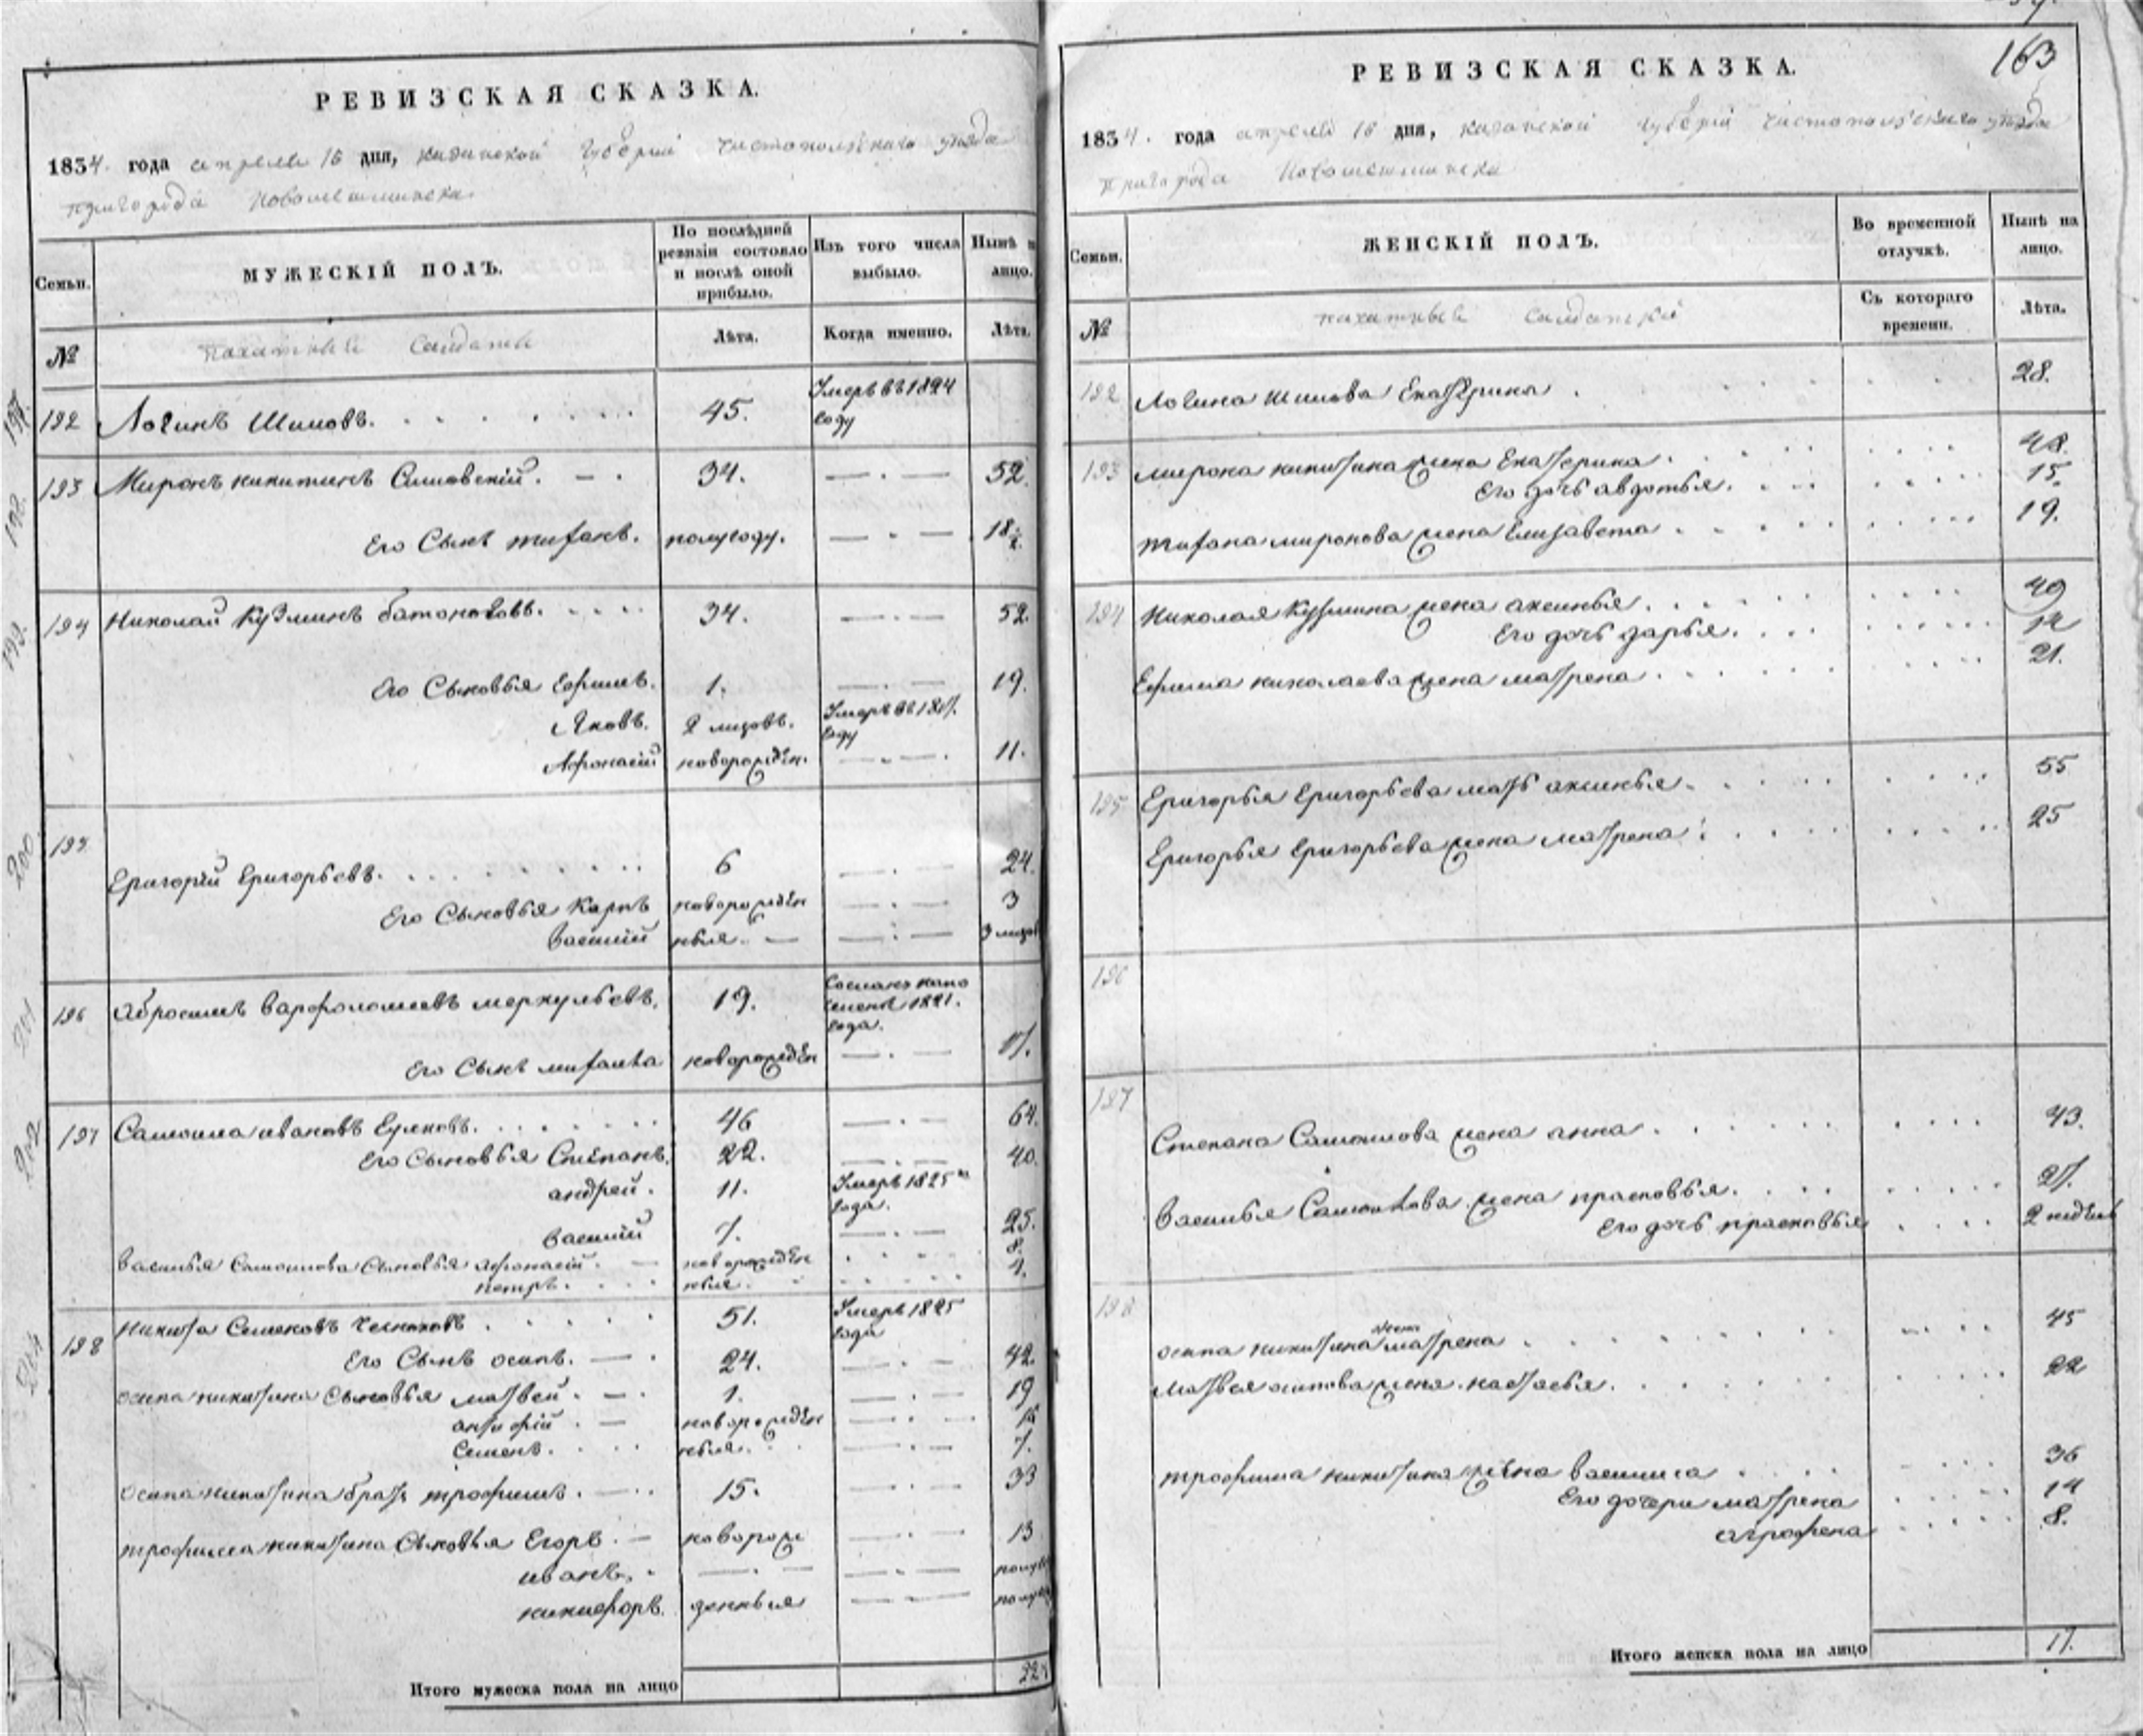 РЕВИЗСКАЯ СКАЗКА.
1834. года апреля 16 дня, казанской губерніи чистопольскаго уѣзда
пригорода Новошешминска
Семьи.
МУЖЕСКІЙ ПОЛЪ.
По послѣдней ревизіи состояло и послѣ оной прибыло.
Изъ того числа выбыло.
Нынѣ н лицо.
№
пахатныи Салдаты
Лѣта.
Когда именно.
Лѣта.
192 Логинъ Шиловъ. 45. Умеръ въ 1824 году
193 Миронъ никитинъ 34. 52.
Его Сынъ полугоду. 18 1/2
194 Николай Кузминъ 34. 52.
Его Сыновья Ефимъ. 1. 19.
Яковъ. 2 мцовъ. Умеръ въ году
Афонасій новорожден. 11.
195 Григорій Григорьевъ. 6 24.
Его Сыновья Карпъ новорожден 3
Василій ныя. 3 мцов
196 Абросимъ варфоломеевъ меркульевъ. 19. Сосланъ на по селеніе 1821. года.
Его Сынъ новорожден 17.
197 Самоила ивановъ 46 64.
Его Сыновья Степанъ. 22. 40.
андрей. 11. Умеръ 1825 года.
Василій 7. 25.
Василья Самоилова Сыновья афонасій. новорожден 8.
петръ. ныя. 1.
198 Никита Семеновъ Чесноковъ 51. Умеръ 1825 года
Его Сынъ осипъ. 24. 42.
осипа никитина Сыновья матвей. 1. 19
новорожден 15
Семенъ. ныя. 7.
осипа никитина братъ трофимъ. 15. 33
трофима никитина Сыновья Егоръ. новорож 13
иванъ.
никифоръ. денныя
Итого мужеска пола на лицо
163
РЕВИЗСКАЯ СКАЗКА.
1834. года апреля 16 дня, казанской губерніи чистопольскаго уѣзда
пригорода Новошешминска
Семьи.
ЖЕНСКІЙ ПОЛЪ.
Во временной отлучкѣ.
Нынѣ на лицо.
№
пахатныи салдатки
Съ котораго времени.
Лѣта.
192 Логина шилова Екатерина. 28.
193 мирона никитина жена Екатерина. 48.
Его дочь авдотья. 15.
миронова жена Елизавета 19.
194 Николая Кузмина жена аксинья. 49
Его дочь дарья. 12
Ефима николаева жена матрена. 21.
195 Григорья Григорьева мать аксинья. 55
Григорья Григорьева жена матрена 25
196
197 Степана Самоилова жена анна. 43.
Василья Самоилова жена прасковья. 27.
Его дочь прасковья 2 недѣль
198 осипа никитина жена матрена 45
Матвея осипова жена настасья. 22
трофима никитина жена василиса 36
Его дочери матрена 14
агрофена 8.
Итого женска пола на лицо 17.
197. 198. 199. 200. 201 202 204